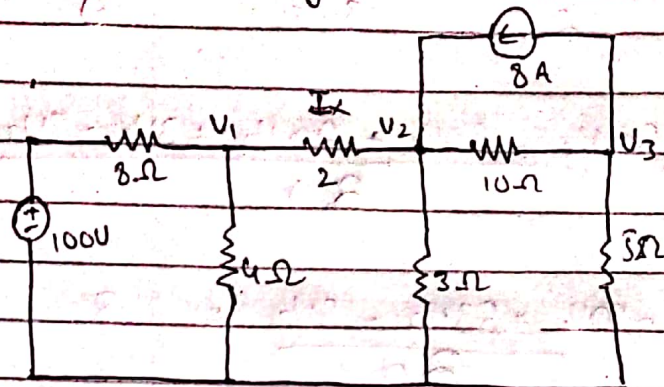 8 A
Ix
V1 V2 V3
8Ω 2 10Ω
100V
4Ω 3Ω 5Ω